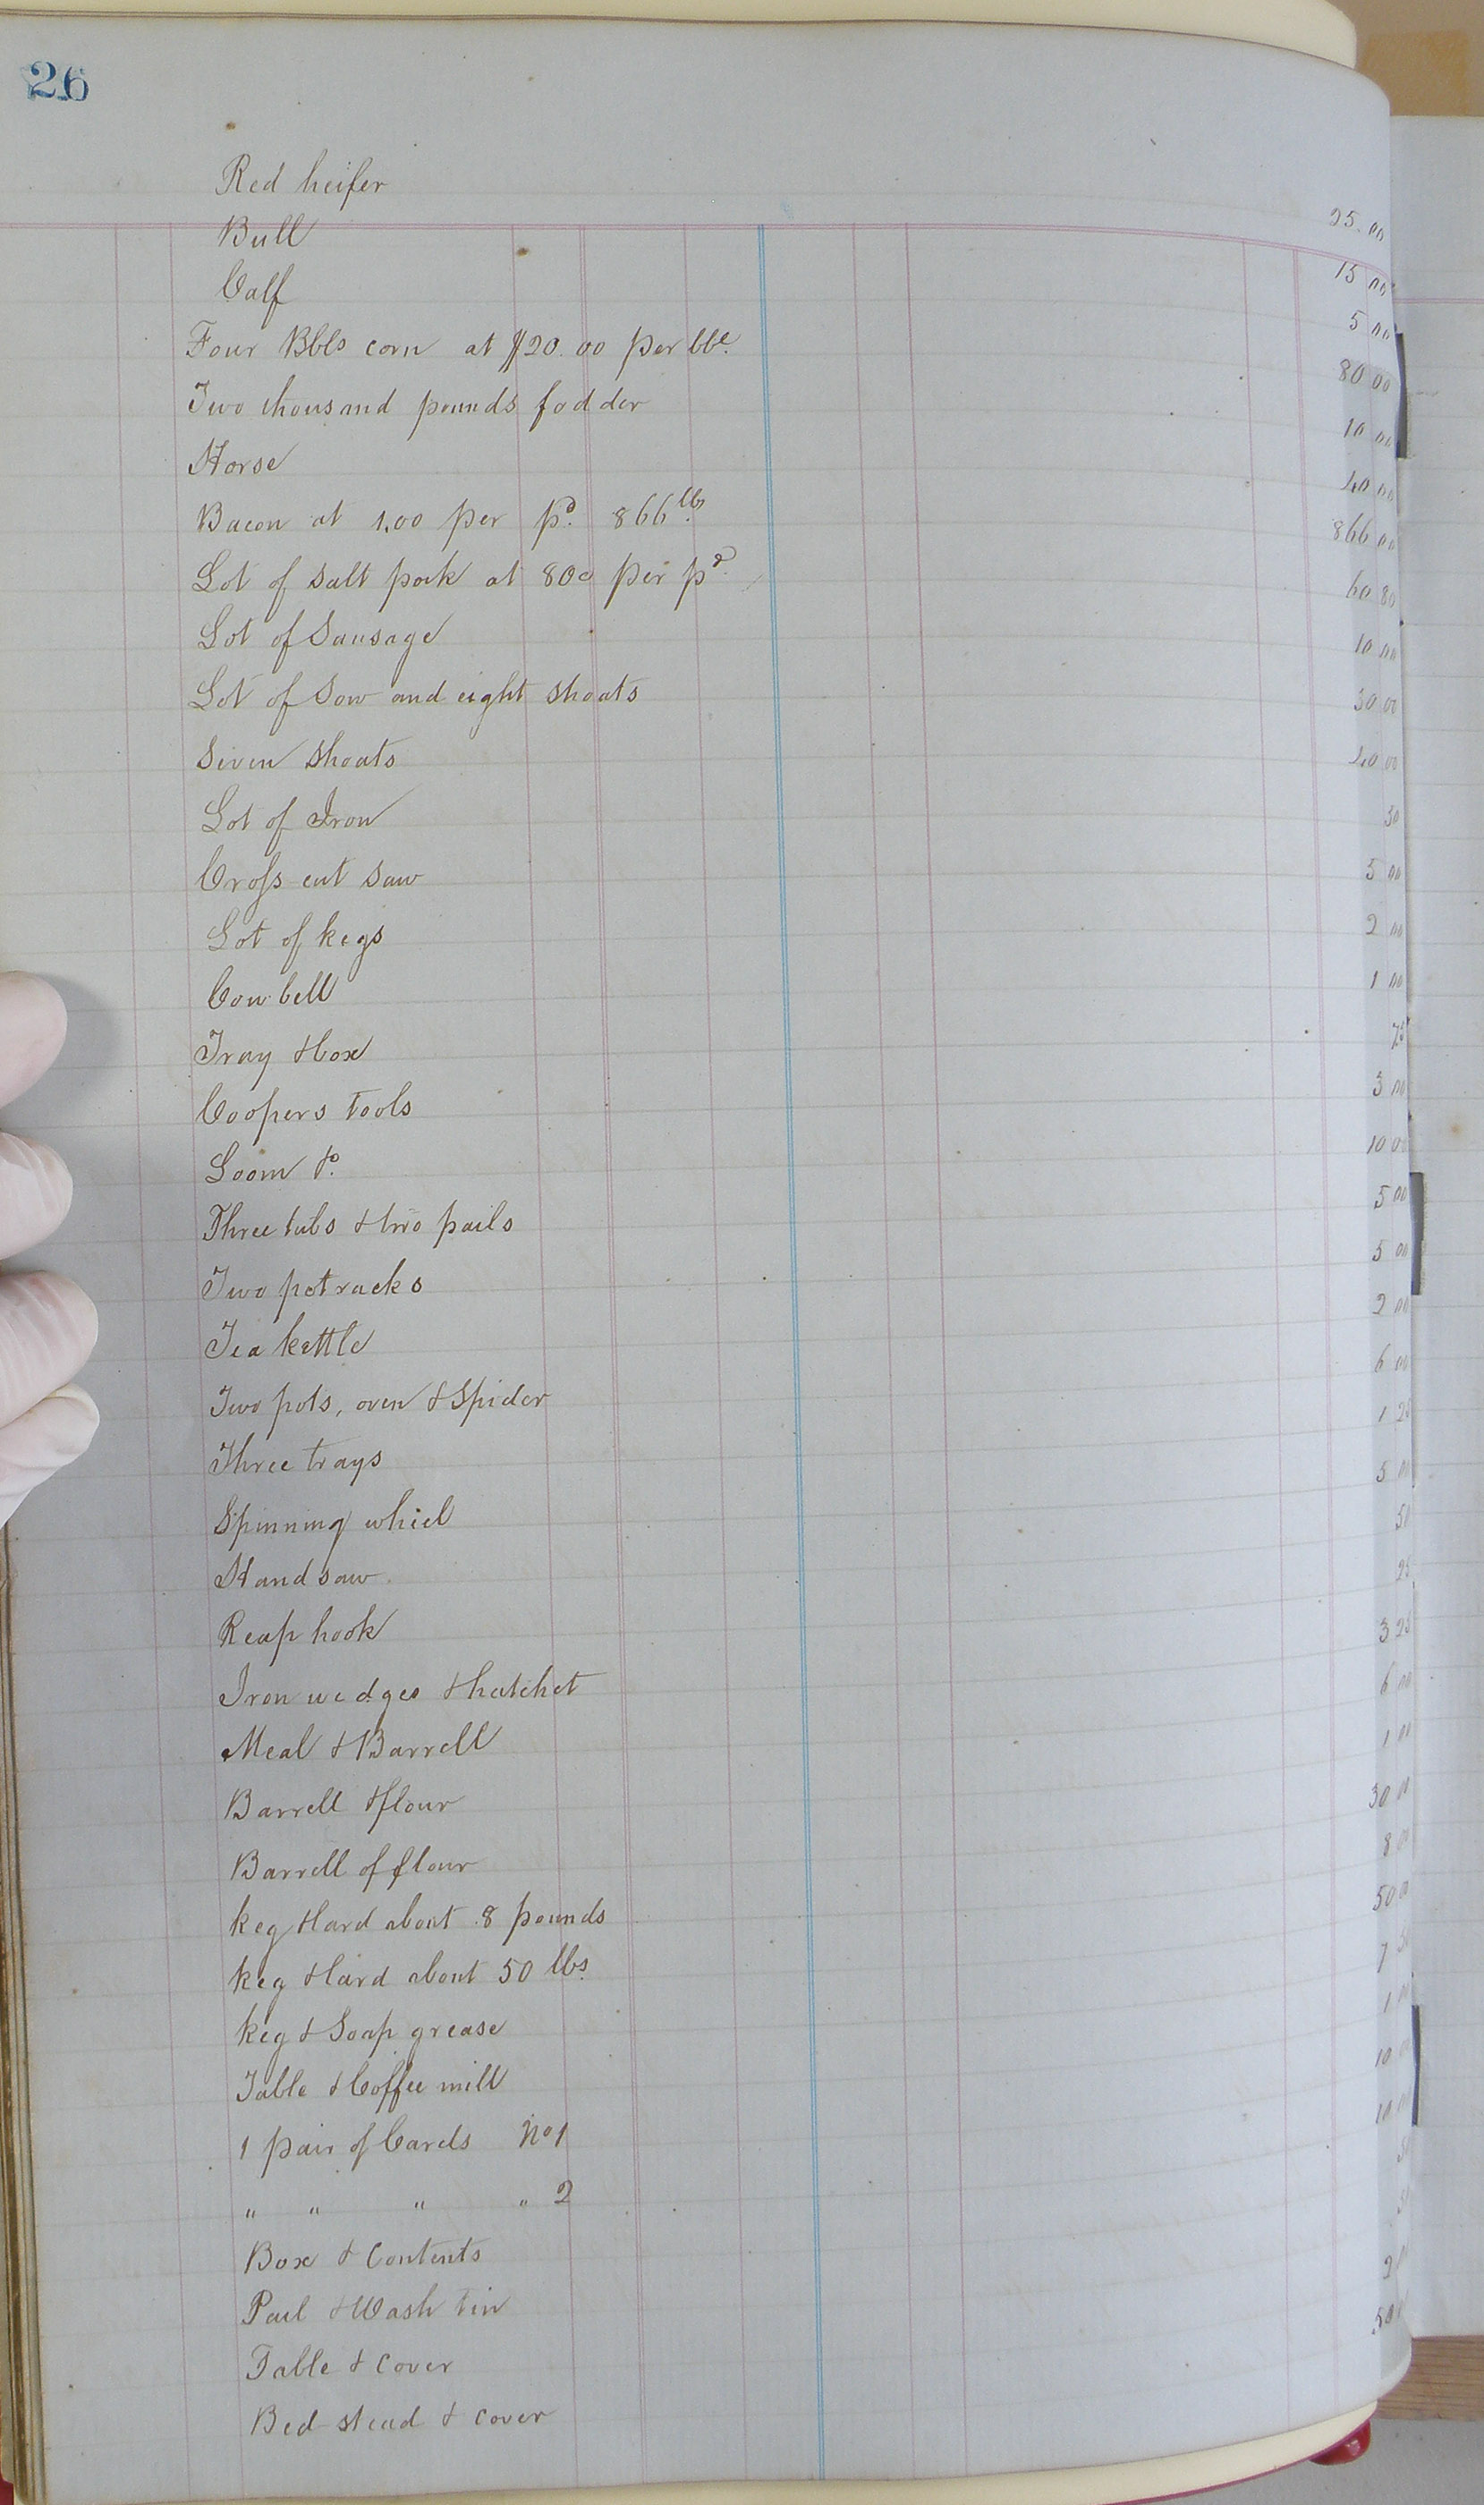 26
Red heifer 25.00
Bull 15 00
Calf 5 00
Four Bbls corn at $20.00 per bbl. 80 00
Two thousand pounds fodder 10 00
Horse 40 00
Bacon at 1.00 per pd. 866 lbs. 866 00
Lot of Salt pork at 80c per pd. 60 80
Lot of Sausage 10 00
Lot of Sow and eight shoats 30 00
Seven Shoats 40 00
Lot of Iron 30
Cross cut saw 5 00
Lot of kegs 2 00
Cow bell 1 00
Tray & box 75
Coopers tools 3 00
Loom &c. 10 00
Three tubs & two pails 5 00
Two potracks 5 00
Tea kettle 2 00
Two pots, oven & Spider 6 00
Three trays 1 25
Spinning wheel 5 00
Hand saw 50
Reap hook 25
Iron wedges & hatchet 3 25
Meal & Barrell 6 00
Barrell & flour 1 00
Barrell of flour 30 00
keg & lard about 8 pounds 8 00
keg & lard about 50 lbs. 50 0
keg & Soap grease 7 50
Table & Coffee mill 1 00
1 pair of Cards No 1 10 00
" " " " 2 10 00
Box & Contents 50
Pail & Wash tin 50
Table & Cover 2
Bed-stead & cover 50